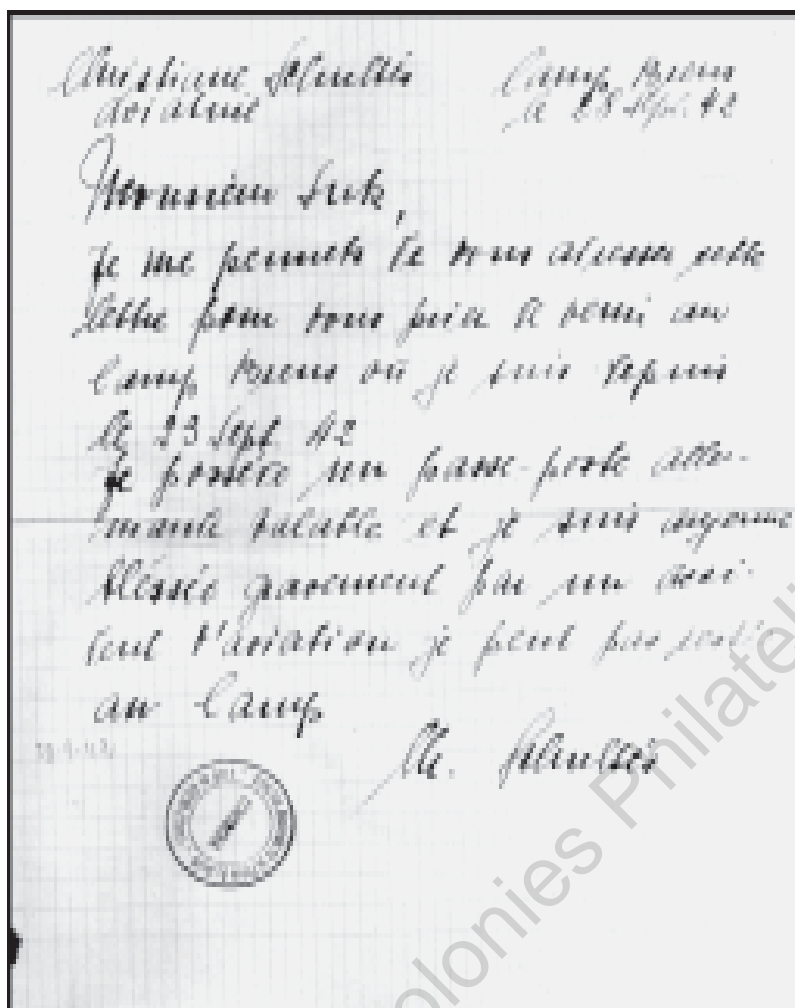 Christiane Schultes Camp Brens
aviatrice le 28 Sept. 42
Monsieur
Je me permets de vous adresser cette
lettre pour vous prier de venir au
Camp Brens où je suis depuis
le 23 Sept 42
Je possère un passe-porte alle-
mande valable et je suis
blessée gravement par un acci-
dent d'aviation je peut pas
au Camp
Ch. Schultes
olonies Philateli